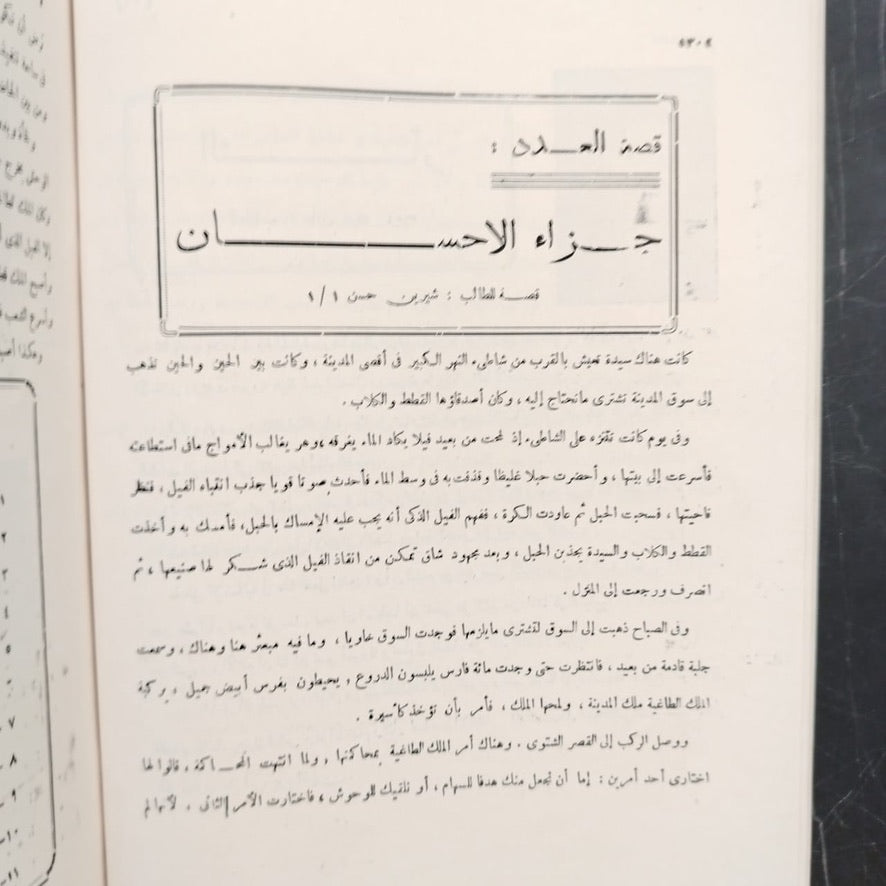 قصة العدد :
جزاء الاحسان
قصة للطالب : شيرين حسن ١/١
كانت هناك سيدة تعيش بالقرب من شاطىء النهر الكبير فى أقصى المدينة ، وكانت بين الحين والحين تذهب
إلى سوق المدينة تشترى ماتحتاج إليه ، وكان أصدقاؤها القطط والكلاب .
وفى يوم كانت تتنزه على الشاطىء إذ لمحت من بعيد فيلا يكاد الماء يغرقه ،وهر يغالب الأمواج مافى استطاعته
فأسرعت إلى بيتها ، وأحضرت حبلا غليظا وقذفت به فى وسط الماء فأحدث صوتا قويا جذب انتباه الفيل ، فنظر
ناحيتها ، فسحبت الحبل ثم عاودت الكرة ، ففهم الفيل الذكى أنه يجب عليه الإمساك بالحبل، فأمسك به وأخذت
القطط والكلاب والسيدة يجذبن الحبل ، وبعد مجهود شاق تمكن من انقاذ الفيل الذى شكر لها صنيعها ، ثم
انصرف ورجعت إلى المنزل .
وفى الصباح ذهبت إلى السوق لتشترى مايلزمها فوجدت السوق خاويا ، وما فيه مبعثر هنا وهناك ، وسمعت
جلبة قادمة من بعيد ، فانتظرت حتى وجدت مائة فارس يلبسون الدروع , يحيطون بفرس أبيض جميل ، يركبه
الملك الطاغية ملك المدينة ، ولمحها الملك ، فأمر بأن تؤخذ كأسيرة .
ووصل الركب إلى القصر الشتوى . وهناك أمر الملك الطاغية بمحاكمتها , ولما انتهت المحاكمة ، قالوا لها
اختارى أحد أمرين : إما أن نجعل منك هدفا للسهام ، أو نلقيك للوحوش ، فاختارت الأمر الثانى . لأنها لم